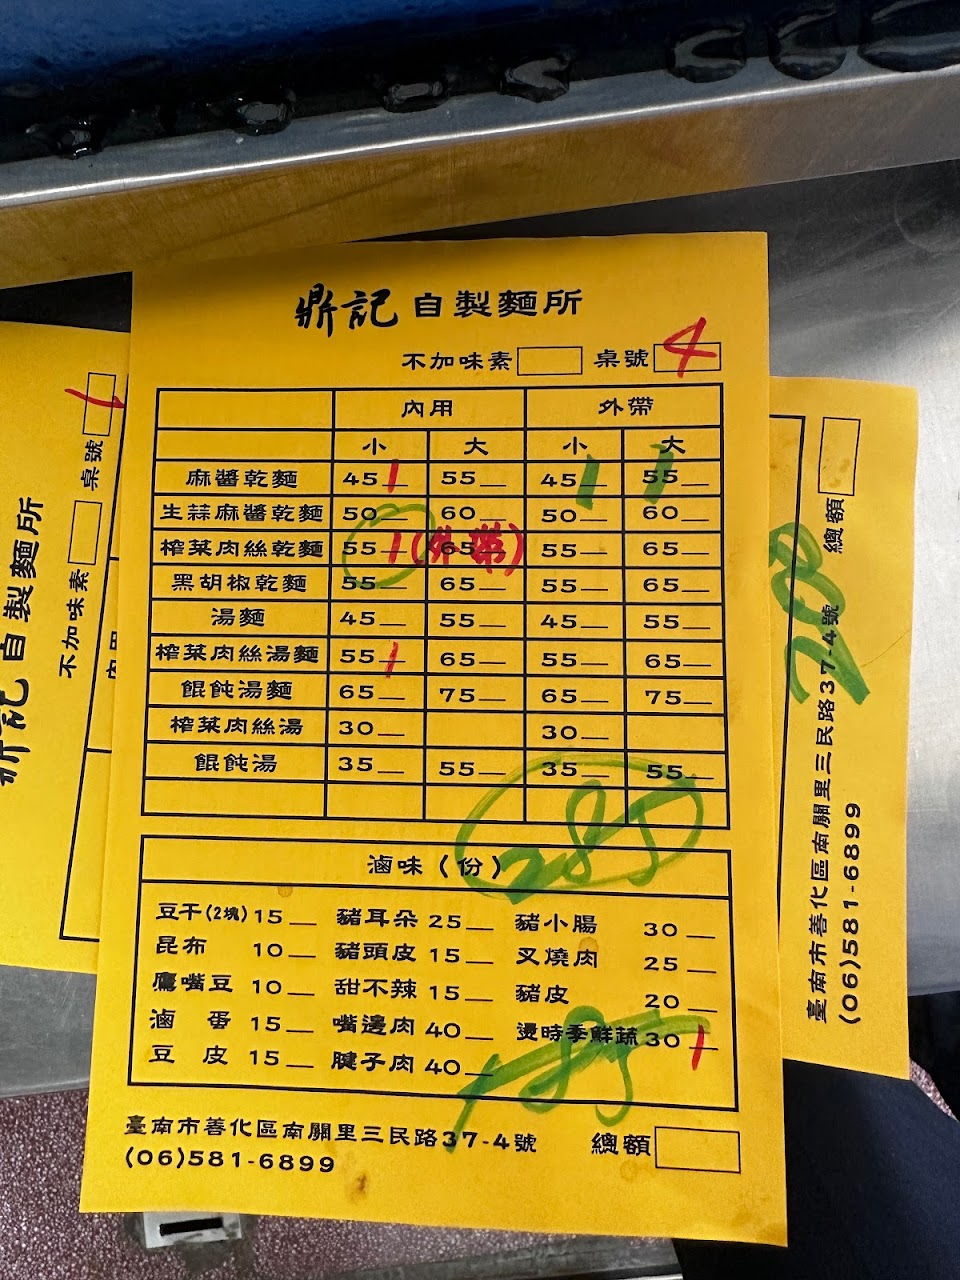 鼎記 自製麵所
不加味素 桌號 4
內用 外帶
小 大 小 大
麻醬乾麵 45 1 55 45 1 55 1
生蒜麻醬乾麵 50 60 50 60
榨菜肉絲乾麵 55 1 65 55 65
黑胡椒乾麵 55 65 55 65
湯麵 45 55 45 55
榨菜肉絲湯麵 55 1 65 55 65
餛飩湯麵 65 75 65 75
榨菜肉絲湯 30 30
餛飩湯 35 55 35 55
285
滷味(份)
豆干(2塊) 15 豬耳朵 25 豬小腸 30
昆布 10 豬頭皮 15 叉燒肉 25
鷹嘴豆 10 甜不辣 15 豬皮 20
滷蛋 15 嘴邊肉 40 燙時季鮮蔬 30 1
豆皮 15 腱子肉 40
185
臺南市善化區南關里三民路37-4號 總額
(06)581-6899
鼎記 自製麵所
不加味素 桌號 1
總額
臺南市善化區南關里三民路37-4號
(06)581-6899